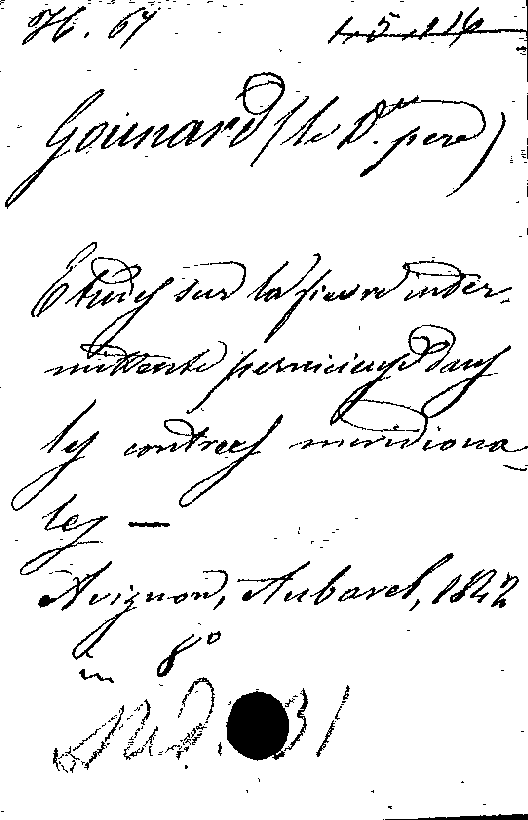 H. 67 1.5.116
Goinard (le Dr. pere)
Etudes sur la fievre inter-
mittente pernicieuse dans
les contrees meridiona-
les —
Avignon, Aubanel, 1842
in 8°
31